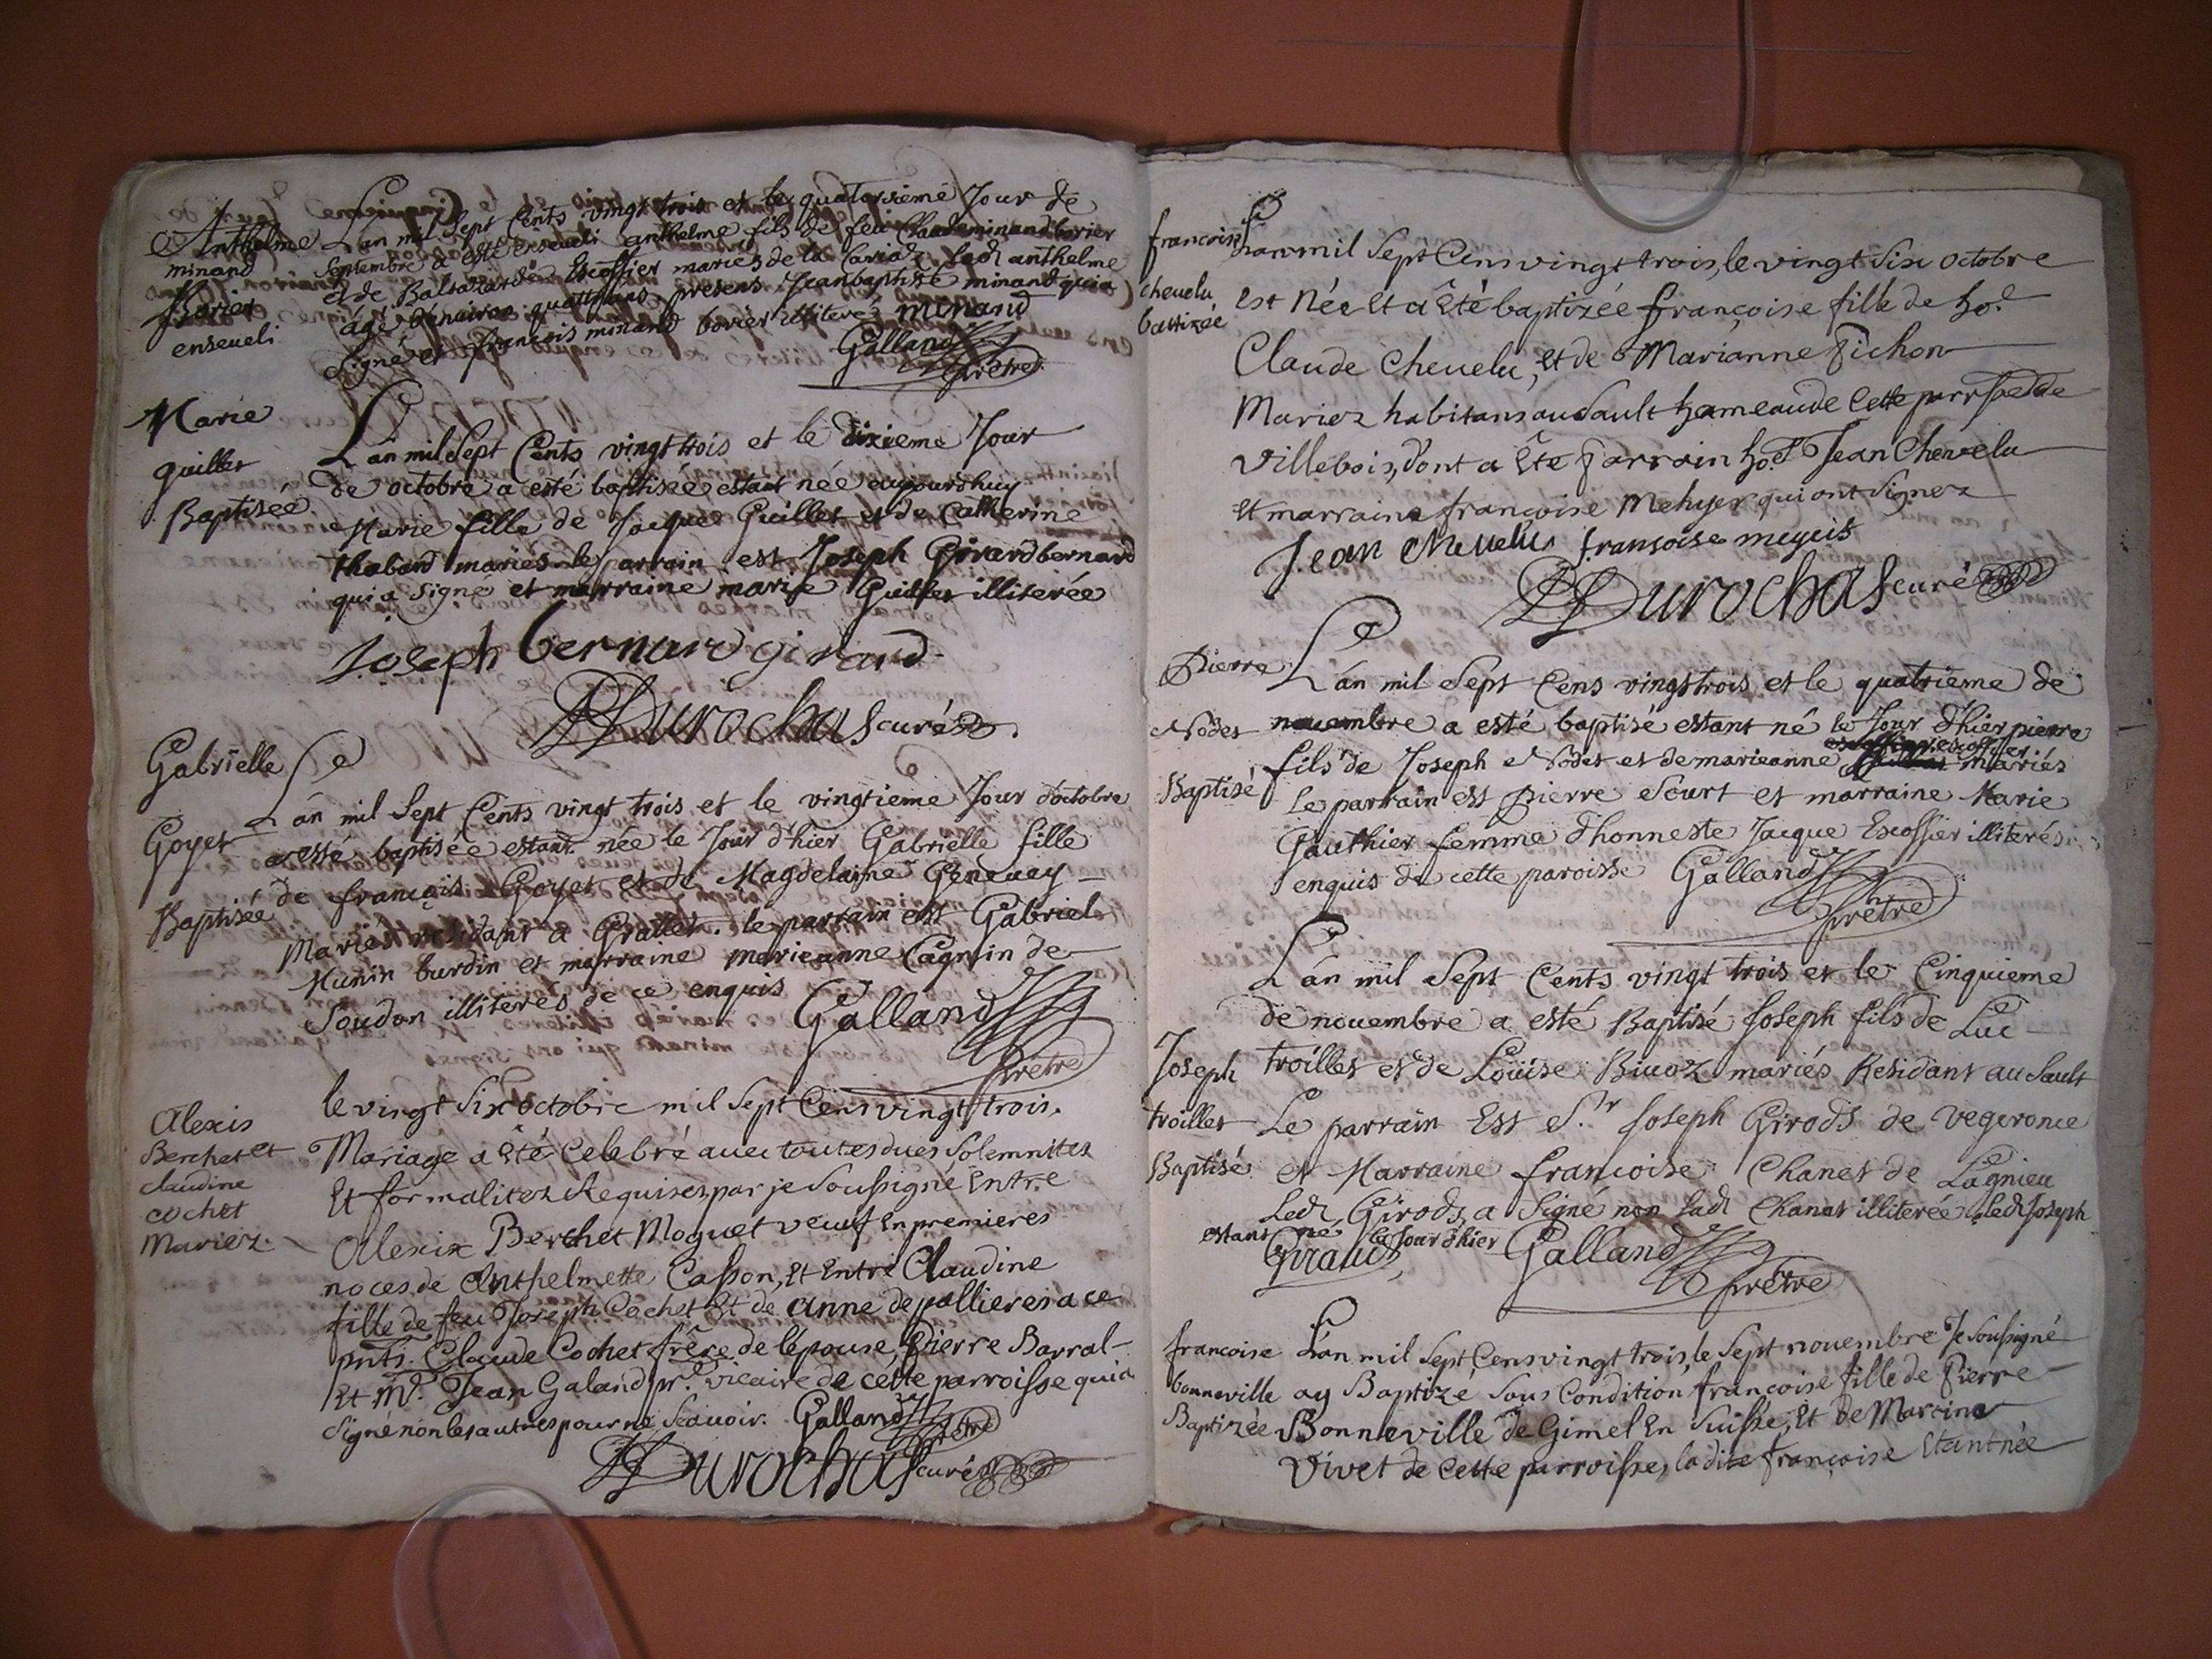 Anthelme
minand
Borier
enseueli
L'an mil Sept Cents vingt trois et le quatorsieme Jour de
Septembre a esté enseueli anthelme fils de feu Claude minand borier
et de Baltazarde Escoffier mariés de la Ledt anthelme
âgé denuiron quatt ans presens Jean baptiste minand qui a
Signé et françois minand borier illiteré minand
Galland
prêtre
Marie
guillet
Baptisée
L'an mil Sept Cents vingt trois et le dixieme Jour
de octobre a esté baptisée estant née aujourdhuy
Marie fille de Jacque Guillet et de Catherine
thaband mariés le parrain est Joseph Girard bernard
qui a Signé et marraine marie Guillet illiterée
Joseph bernard girard
Durochas curé
Gabrielle
Goyet
Baptisée
L'an mil Sept Cents vingt trois et le vingtieme Jour d'octobre
a esté baptisée estant née le Jour d'hier Gabrielle fille
de françois Goyet et de Magdelaine Geneuey
Mariés residant a Grallet. le parrain est Gabriel
Munin burdin et marraine marieanne Cagnin de
Soudon illiteres de ce enquis Galland
prêtre
Alexis
Berchet et
claudine
cochet
Mariez.
le vingt Six octobre mil Sept Cens vingt trois.
Mariage a Eté Celebré auec toutes dues Solemnitez
Et formalitez Requises par je Soussigné Entre
Alexis Berchet Moguet veuf En premieres
noces de Anthelmette Casson, Et Entre Claudine
fille de feu Joseph Cochet Et de anne depallieres a ce
pnts. Claude Cochet frêre de l'épouse, Pierre Barral
Et Mr. Jean Galand pr. vicaire de cette parroisse qui a
Signé non les autres pour ne Scauoir. Galland
prêtre
Durochas curé
francoise
cheuelu
battizée
L'an mil Sept Cens vingt trois, le vingt Six octobre
Est Née Et a Eté baptizée françoise fille de ho.e
Claude Cheuelu, Et de Marianne Pichon
Mariez habitans au Sault hameau de Cette parrsse de
Villebois, dont a Eté Parrain ho.e Jean Chevelu
Et marraine françoise Mehyer qui ont Signez
Jean cheuelu fransoise megeis
Durochas curé
Pierre
Nodet
Baptisé
L'an mil Sept Cens vingt trois et le quatrieme de
nouembre a esté baptisé estant né le Jour d'hier pierre
escoffier
fils de Joseph Nodet et de marieanne mariés
Le parrain est Pierre Sourt et marraine Marie
Gauthier femme d'honneste Jacque Escoffier illiterés
enquis de cette paroisse Galland
prêtre
Joseph
troillet
Baptisé
L'an mil Sept Cents vingt trois et le Cinquieme
de nouembre a esté Baptisé Joseph fils de Luc
troillet et de Loüise Biuoz mariés Residant au Sault
Le parrain Est S.r Joseph Girods de vegeronce
et Marraine francoise Chanet de Lagnieu
Ledt Girods a Signé non ladt Chanet illiterée Ledt Joseph
estant né le Jour d'hier
Giraud Galland
prêtre
francoise
bonneville
Baptizée
L'an mil Sept Cens vingt trois, le Sept nouembre Je Soussigné
ay Baptizé Sous Condition françoise fille de Pierre
Bonneville de Gimel En Suisse, Et de Marcine
Vivet de Cette parroisse, ladite françoise Etant née